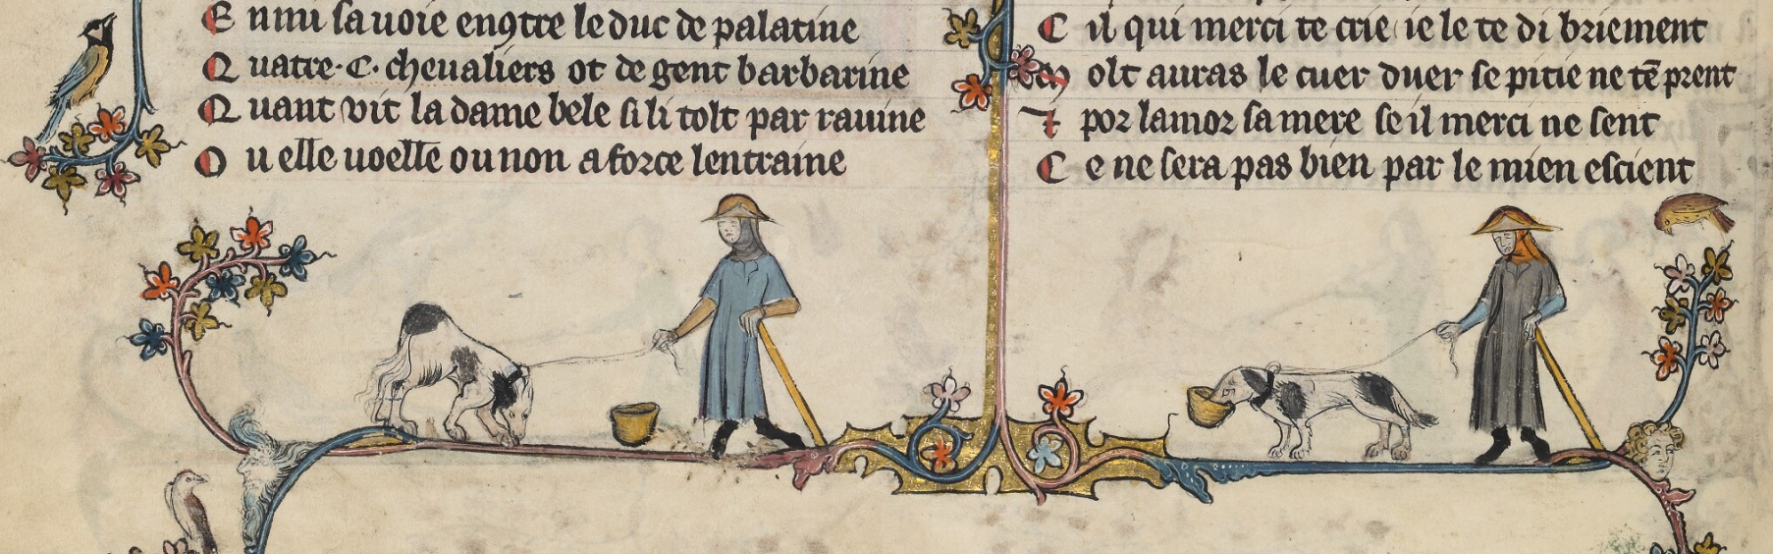 E nmi sa uoie enꝯtre le duc de palatine
Q uatre · C · cheualiers ot de gent barbarine
Q uant vit la dame bele si li tolt par rauine
O u elle uoelle ou non a force lentraine
C il qui merci te crie ie le te di briement
M olt auras le cuer duer se pitie ne tē prent
⁊ por lamor sa mere se il merci ne sent
C e ne sera pas bien par le mien escient